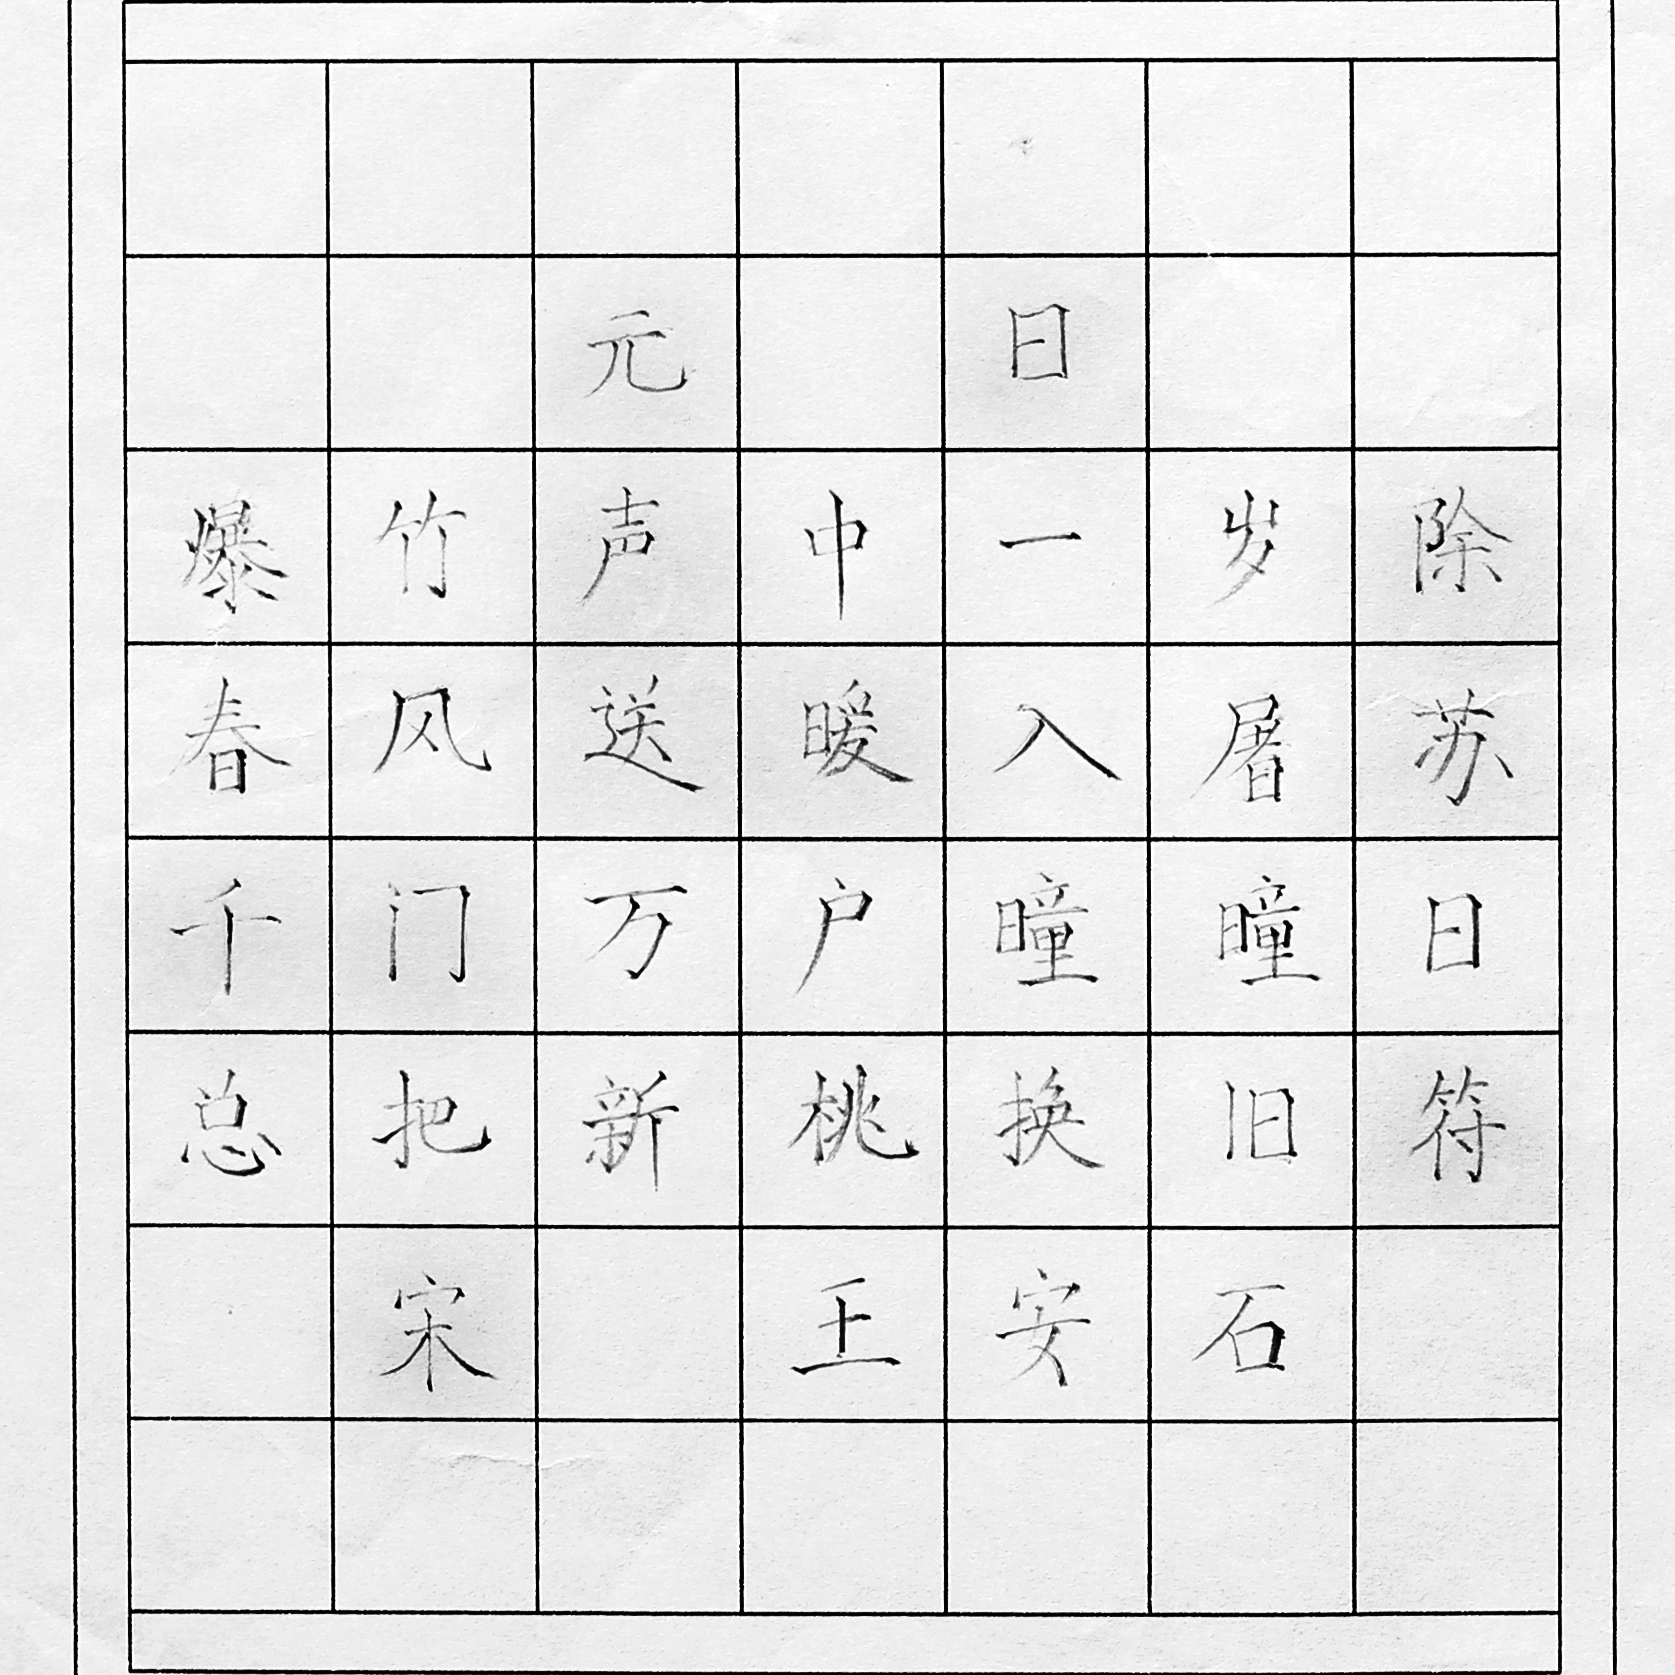 元 日
爆竹声中一岁除
春风送暖入屠苏
千门万户曈曈日
总把新桃换旧符
宋 王安石